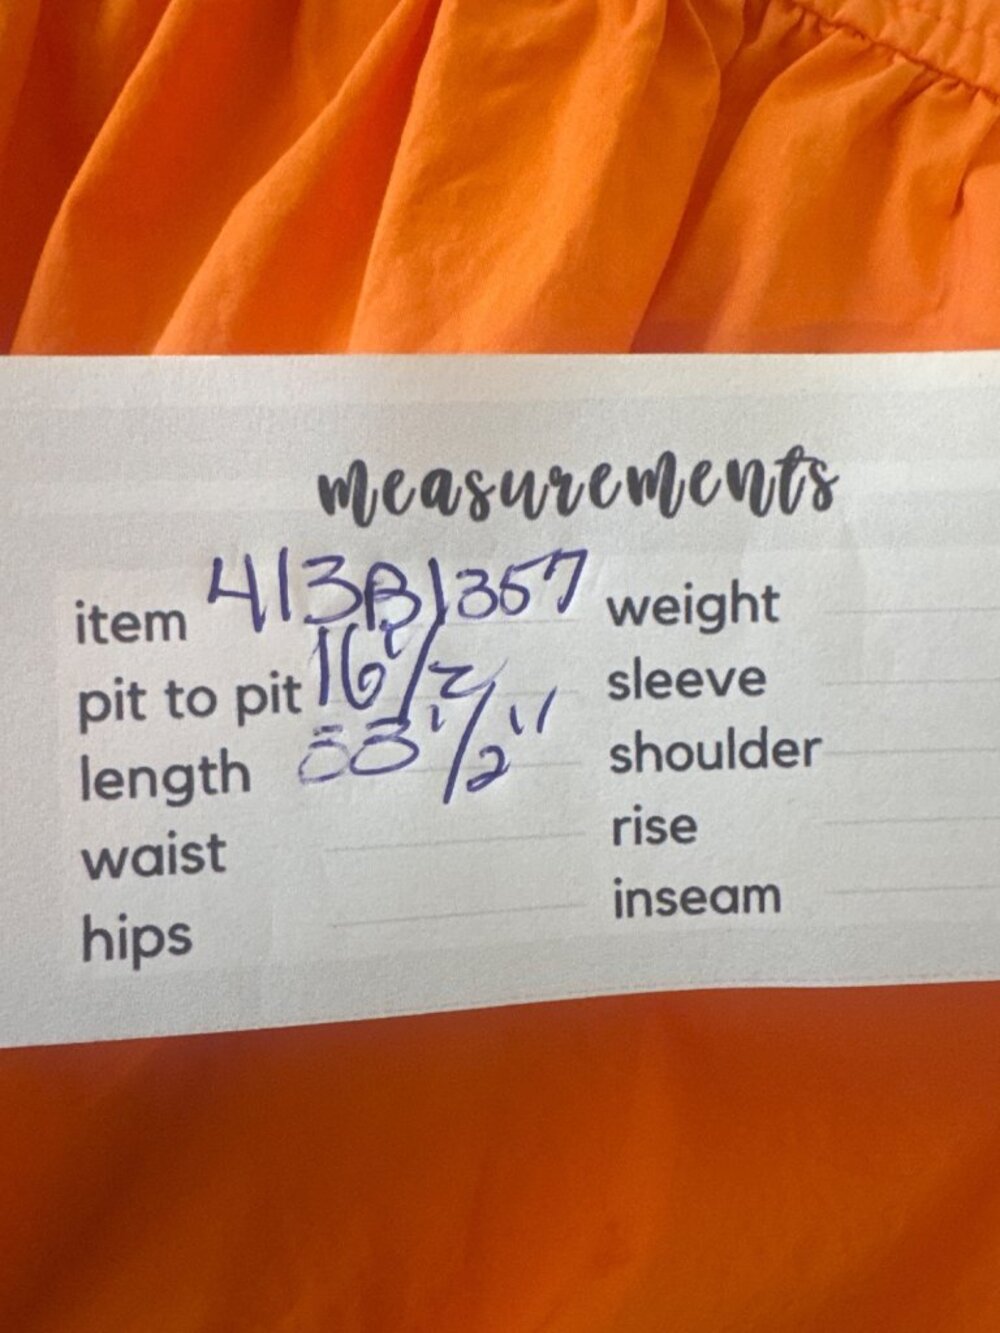 measurements
item 413B1357
pit to pit 16 1/2
length 33 1/2"
waist
hips
weight
sleeve
shoulder
rise
inseam